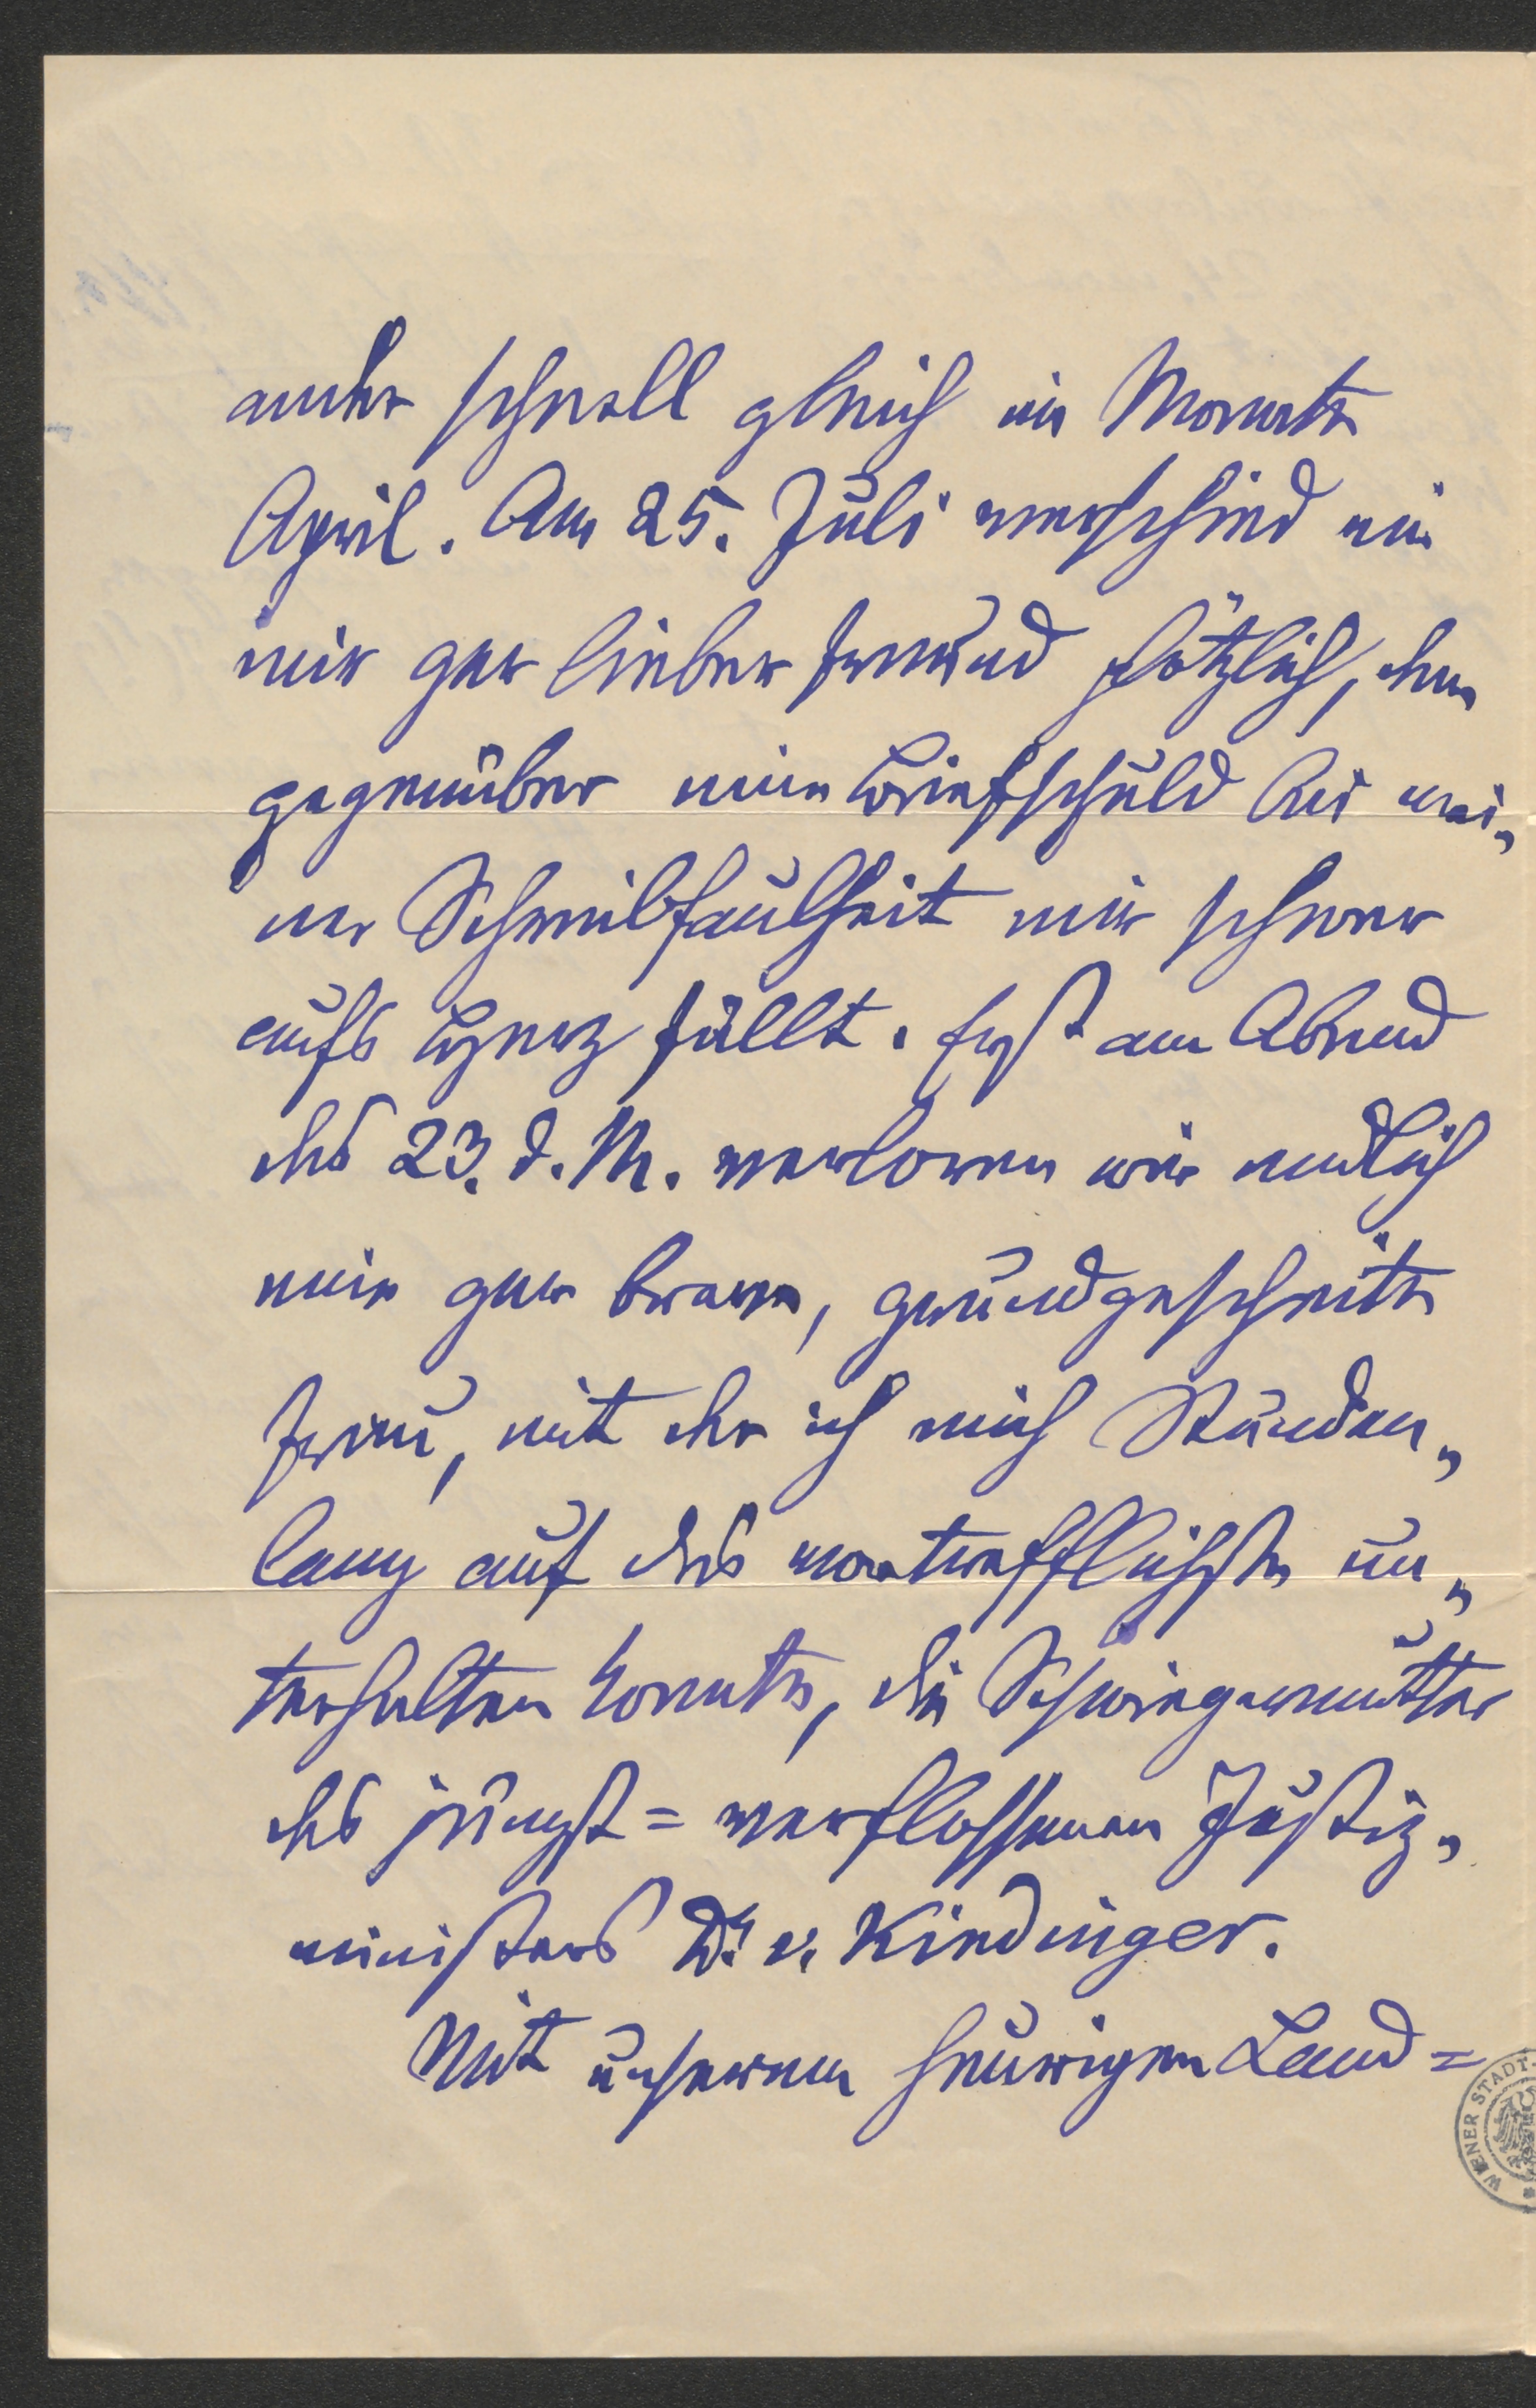 ander schnell gleich im Monate
April. Am 25. Juli verschied ein
mir gar lieber Freund plötzlich, dem
gegenüber meine Briefschuld bei mei„
ner Schreibfaulheit mir schwer
aufs Herz fällt. Erst am Abend
des 23. d. M. verloren wir endlich
eine gar brave, grundgescheite
Frau, mit der ich mich Stunden„
lang auf das vortrefflichste un„
terhalten konnte, die Schwiegermutter
des jüngst=verflossenen Justiz„
ministers Dr. v. Kindinger.
Mit unserem heurigen Land=
WIENER STADT-